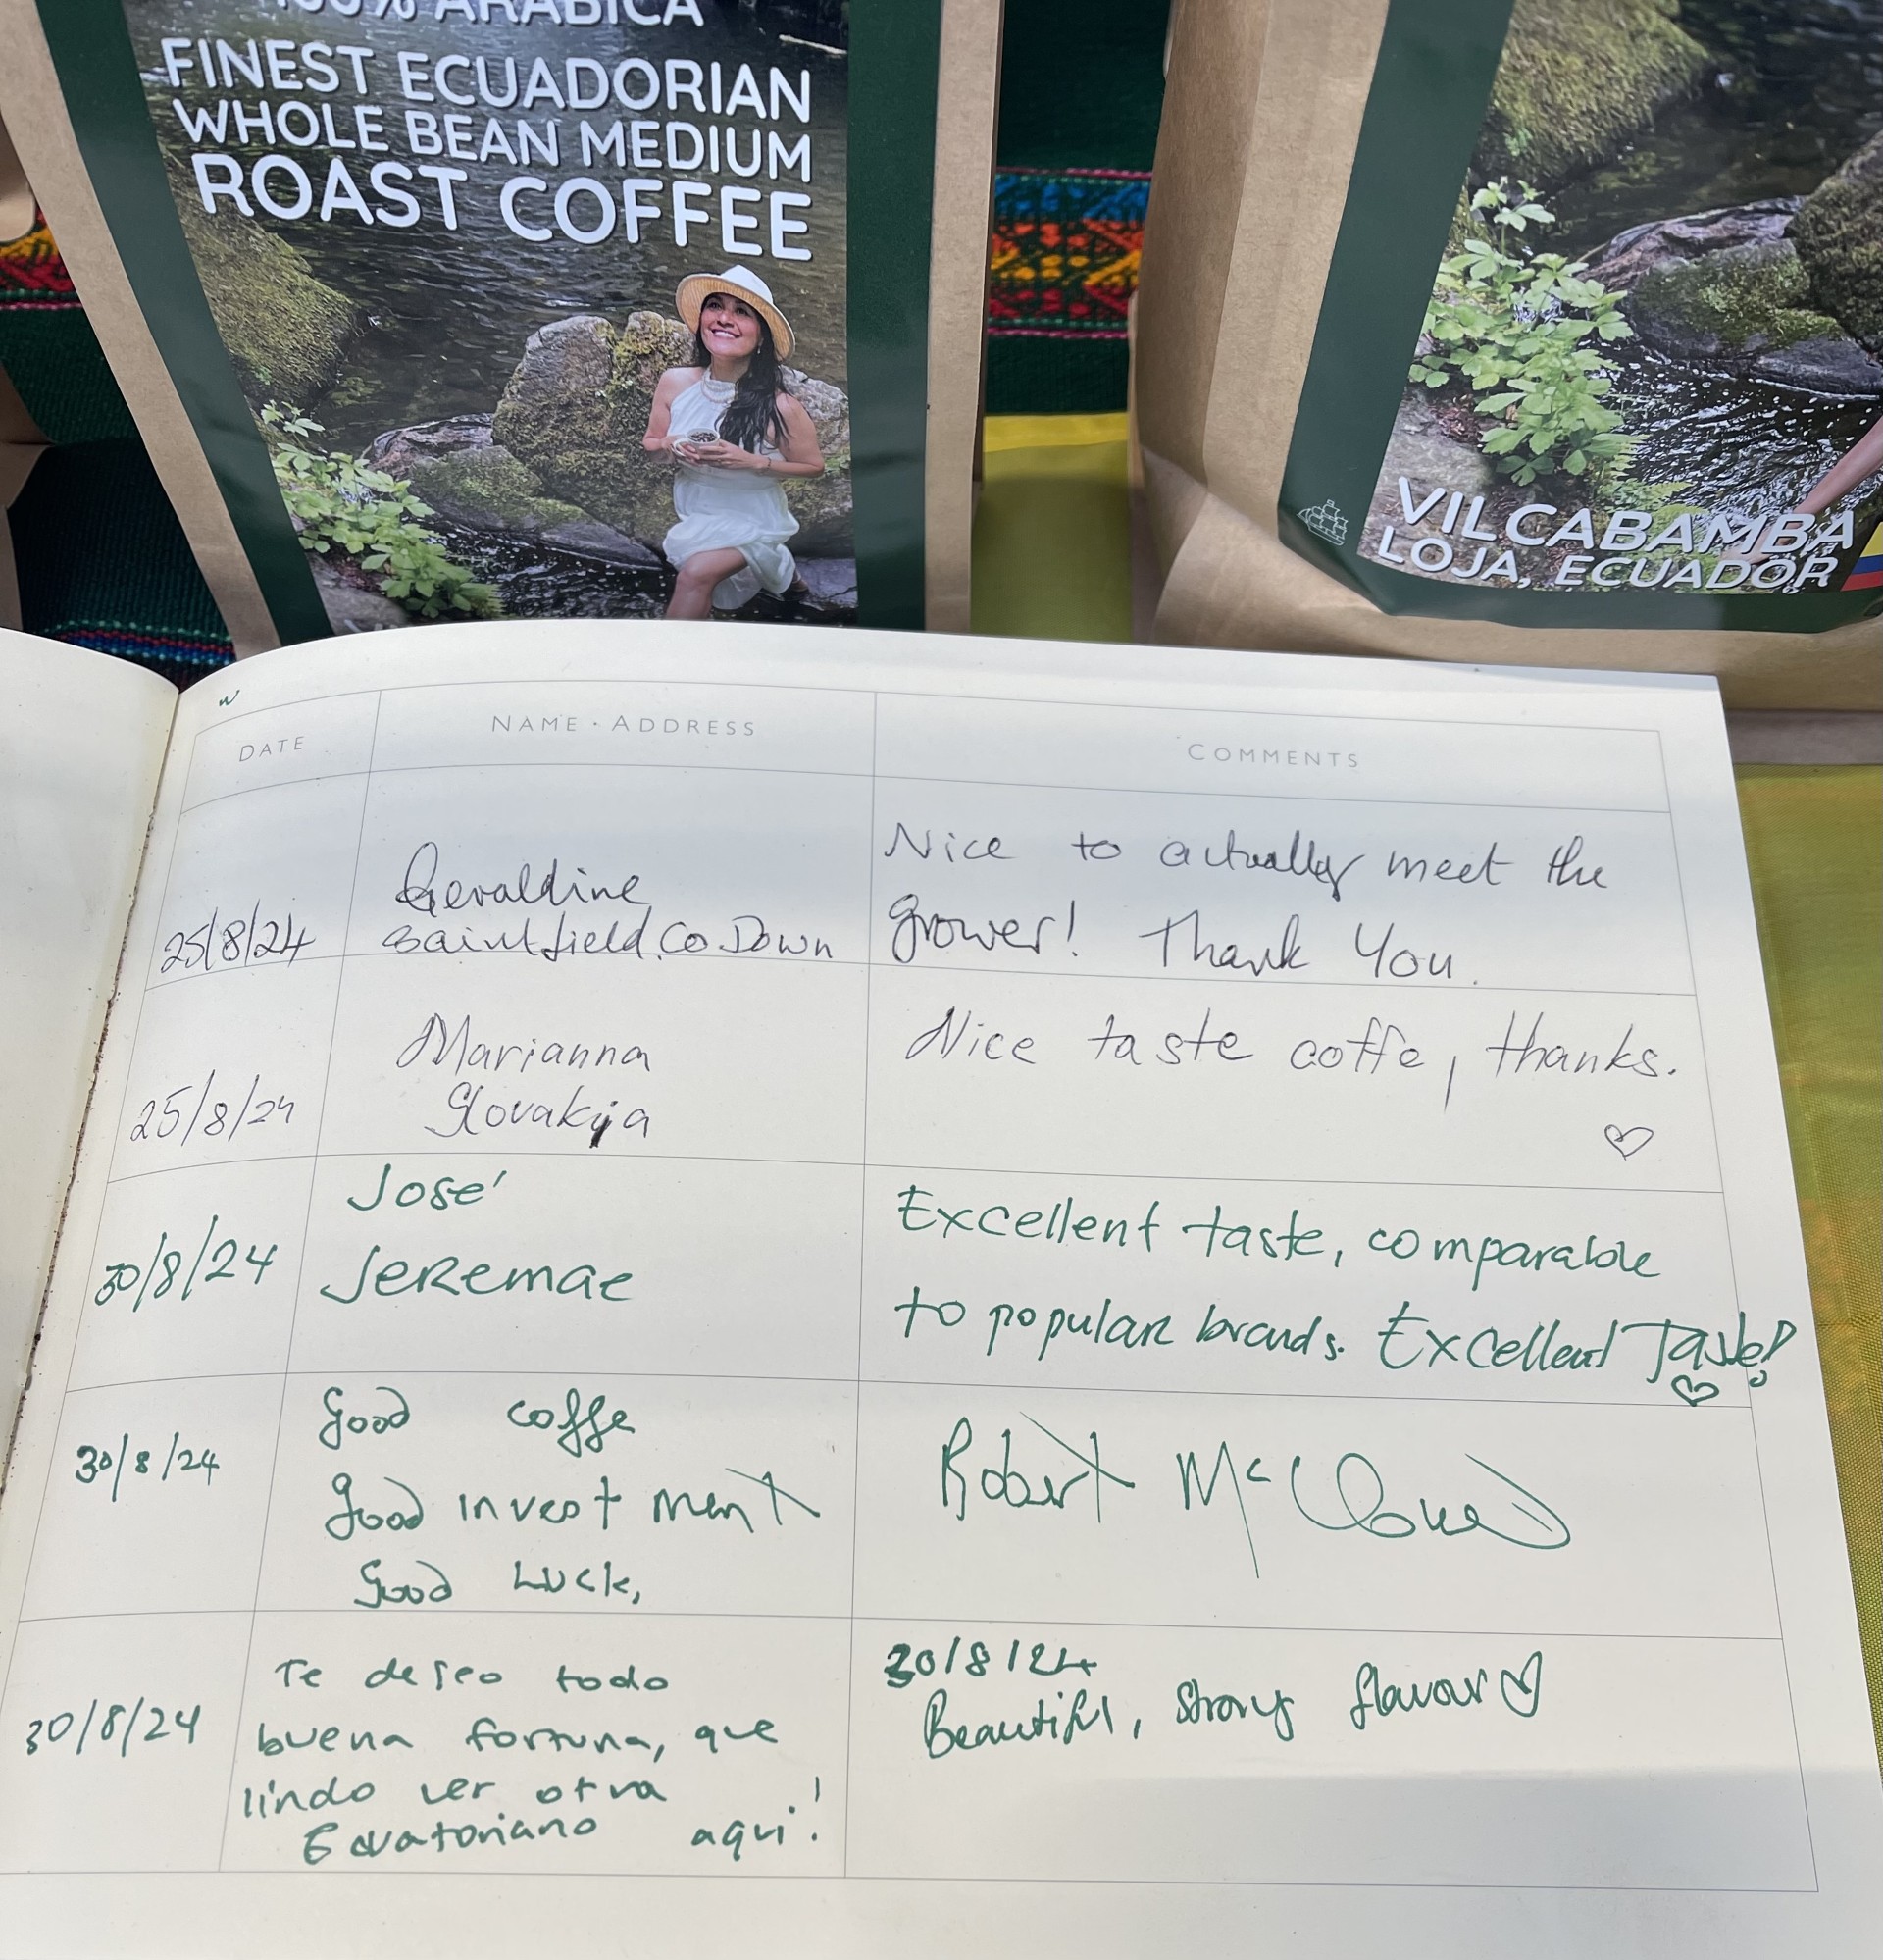 100% ARABICA
FINEST ECUADORIAN
WHOLE BEAN MEDIUM
ROAST COFFEE
VILCABAMBA
LOJA, ECUADOR
DATE
NAME · ADDRESS
COMMENTS
25/8/24
Geraldine
Saintfield, Co Down
Nice to actually meet the
grower! Thank You.
25/8/24
Marianna
Slovakija
Nice taste coffe, thanks.
30/8/24
José
Jeremae
Excellent taste, comparable
to popular brands. Excellent Taste!
30/8/24
Good coffe
Good investment
Good Luck,
Robert McCloud
30/8/24
Te deseo todo
buena fortuna, que
lindo ver otra
Ecuatoriano aqui!
30/8/24
Beautiful, strong flavour